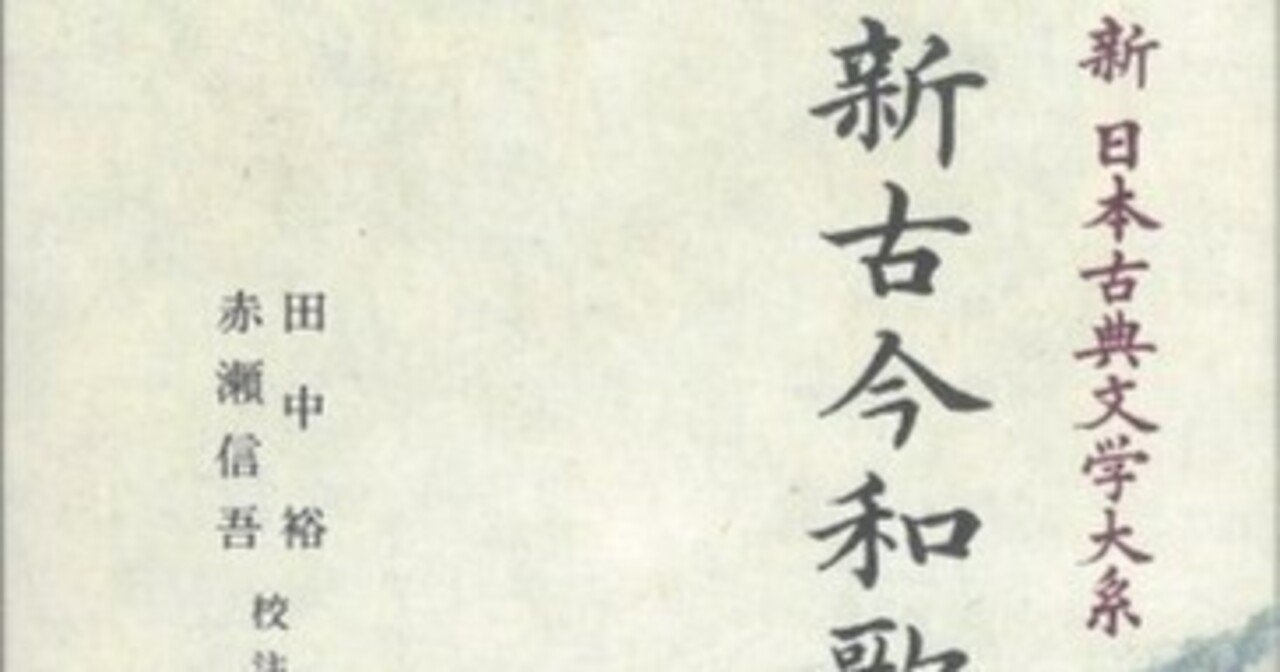 新日本古典文学大系
新古今和歌
田中裕
赤瀬信吾
校注